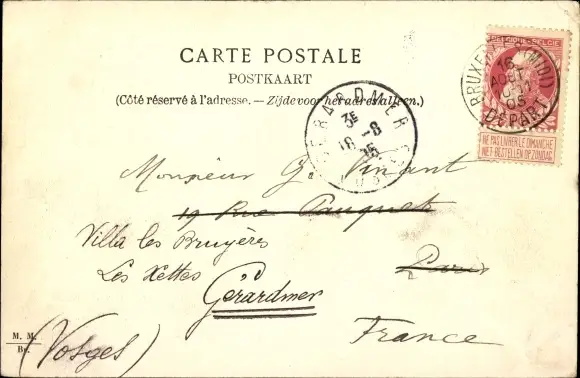 CARTE POSTALE
POSTKAART
(Côté réservé à l'adresse. — Zijde voor het adres alleen.)
BELGIQUE-BELGIE
BRUXELLES (MIDI)
16
AOUT
05
DÉPART
NE PAS LIVRER LE DIMANCHE
NIET BESTELLEN OP ZONDAG
GERARDMER
3E
18 -8
05
Monsieur G. Vinant
19 Rue Pauquet
Villa les Bruyères
Les Xettes
Paris
Gérardmer
France
M. M.
Br.
(Vosges)